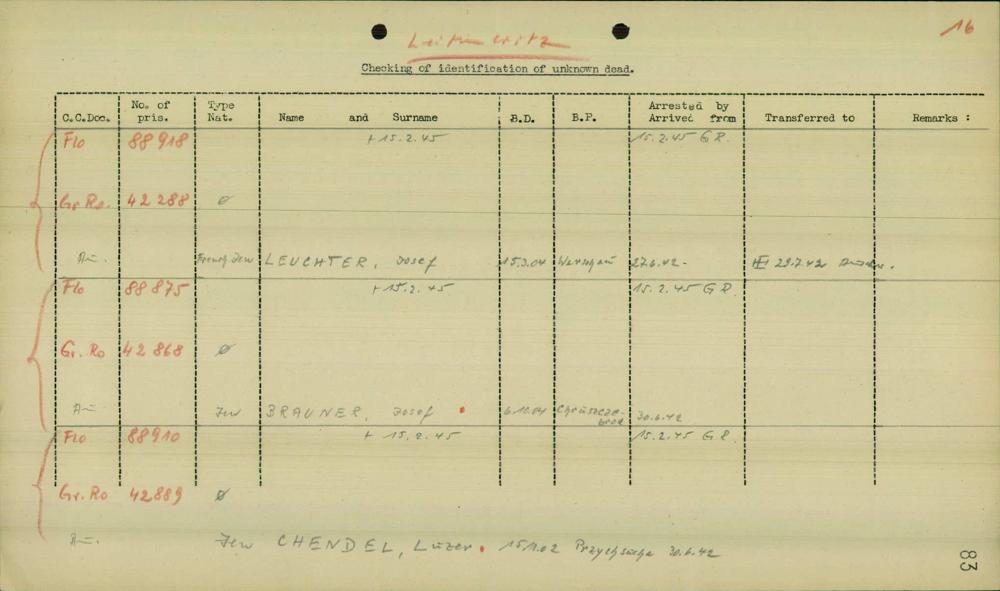 Leitmeritz
16
Checking of identification of unknown dead.
C.C.Doc. No. of pris. Type Nat. Name and Surname B.D. B.P. Arrested by Arrived from Transferred to Remarks :
Flo 88918 + 15.2.45 15.2.45 G R.
Gr. Ro. 42288 ø
Au. French Jew LEUCHTER, Josef 15.3.04 Warschau 27.6.42 - 29.7.42
Flo 88875 + 15.2.45 15.2.45 G R.
Gr. Ro 42868 ø
Au Jew BRAUNER, Josef 6.10.04 30.6.42
Flo 88910 + 15.2.45 15.2.45 G R.
Gr. Ro 42889 ø
Au. Jew CHENDEL, Luzer. 30.6.42
83